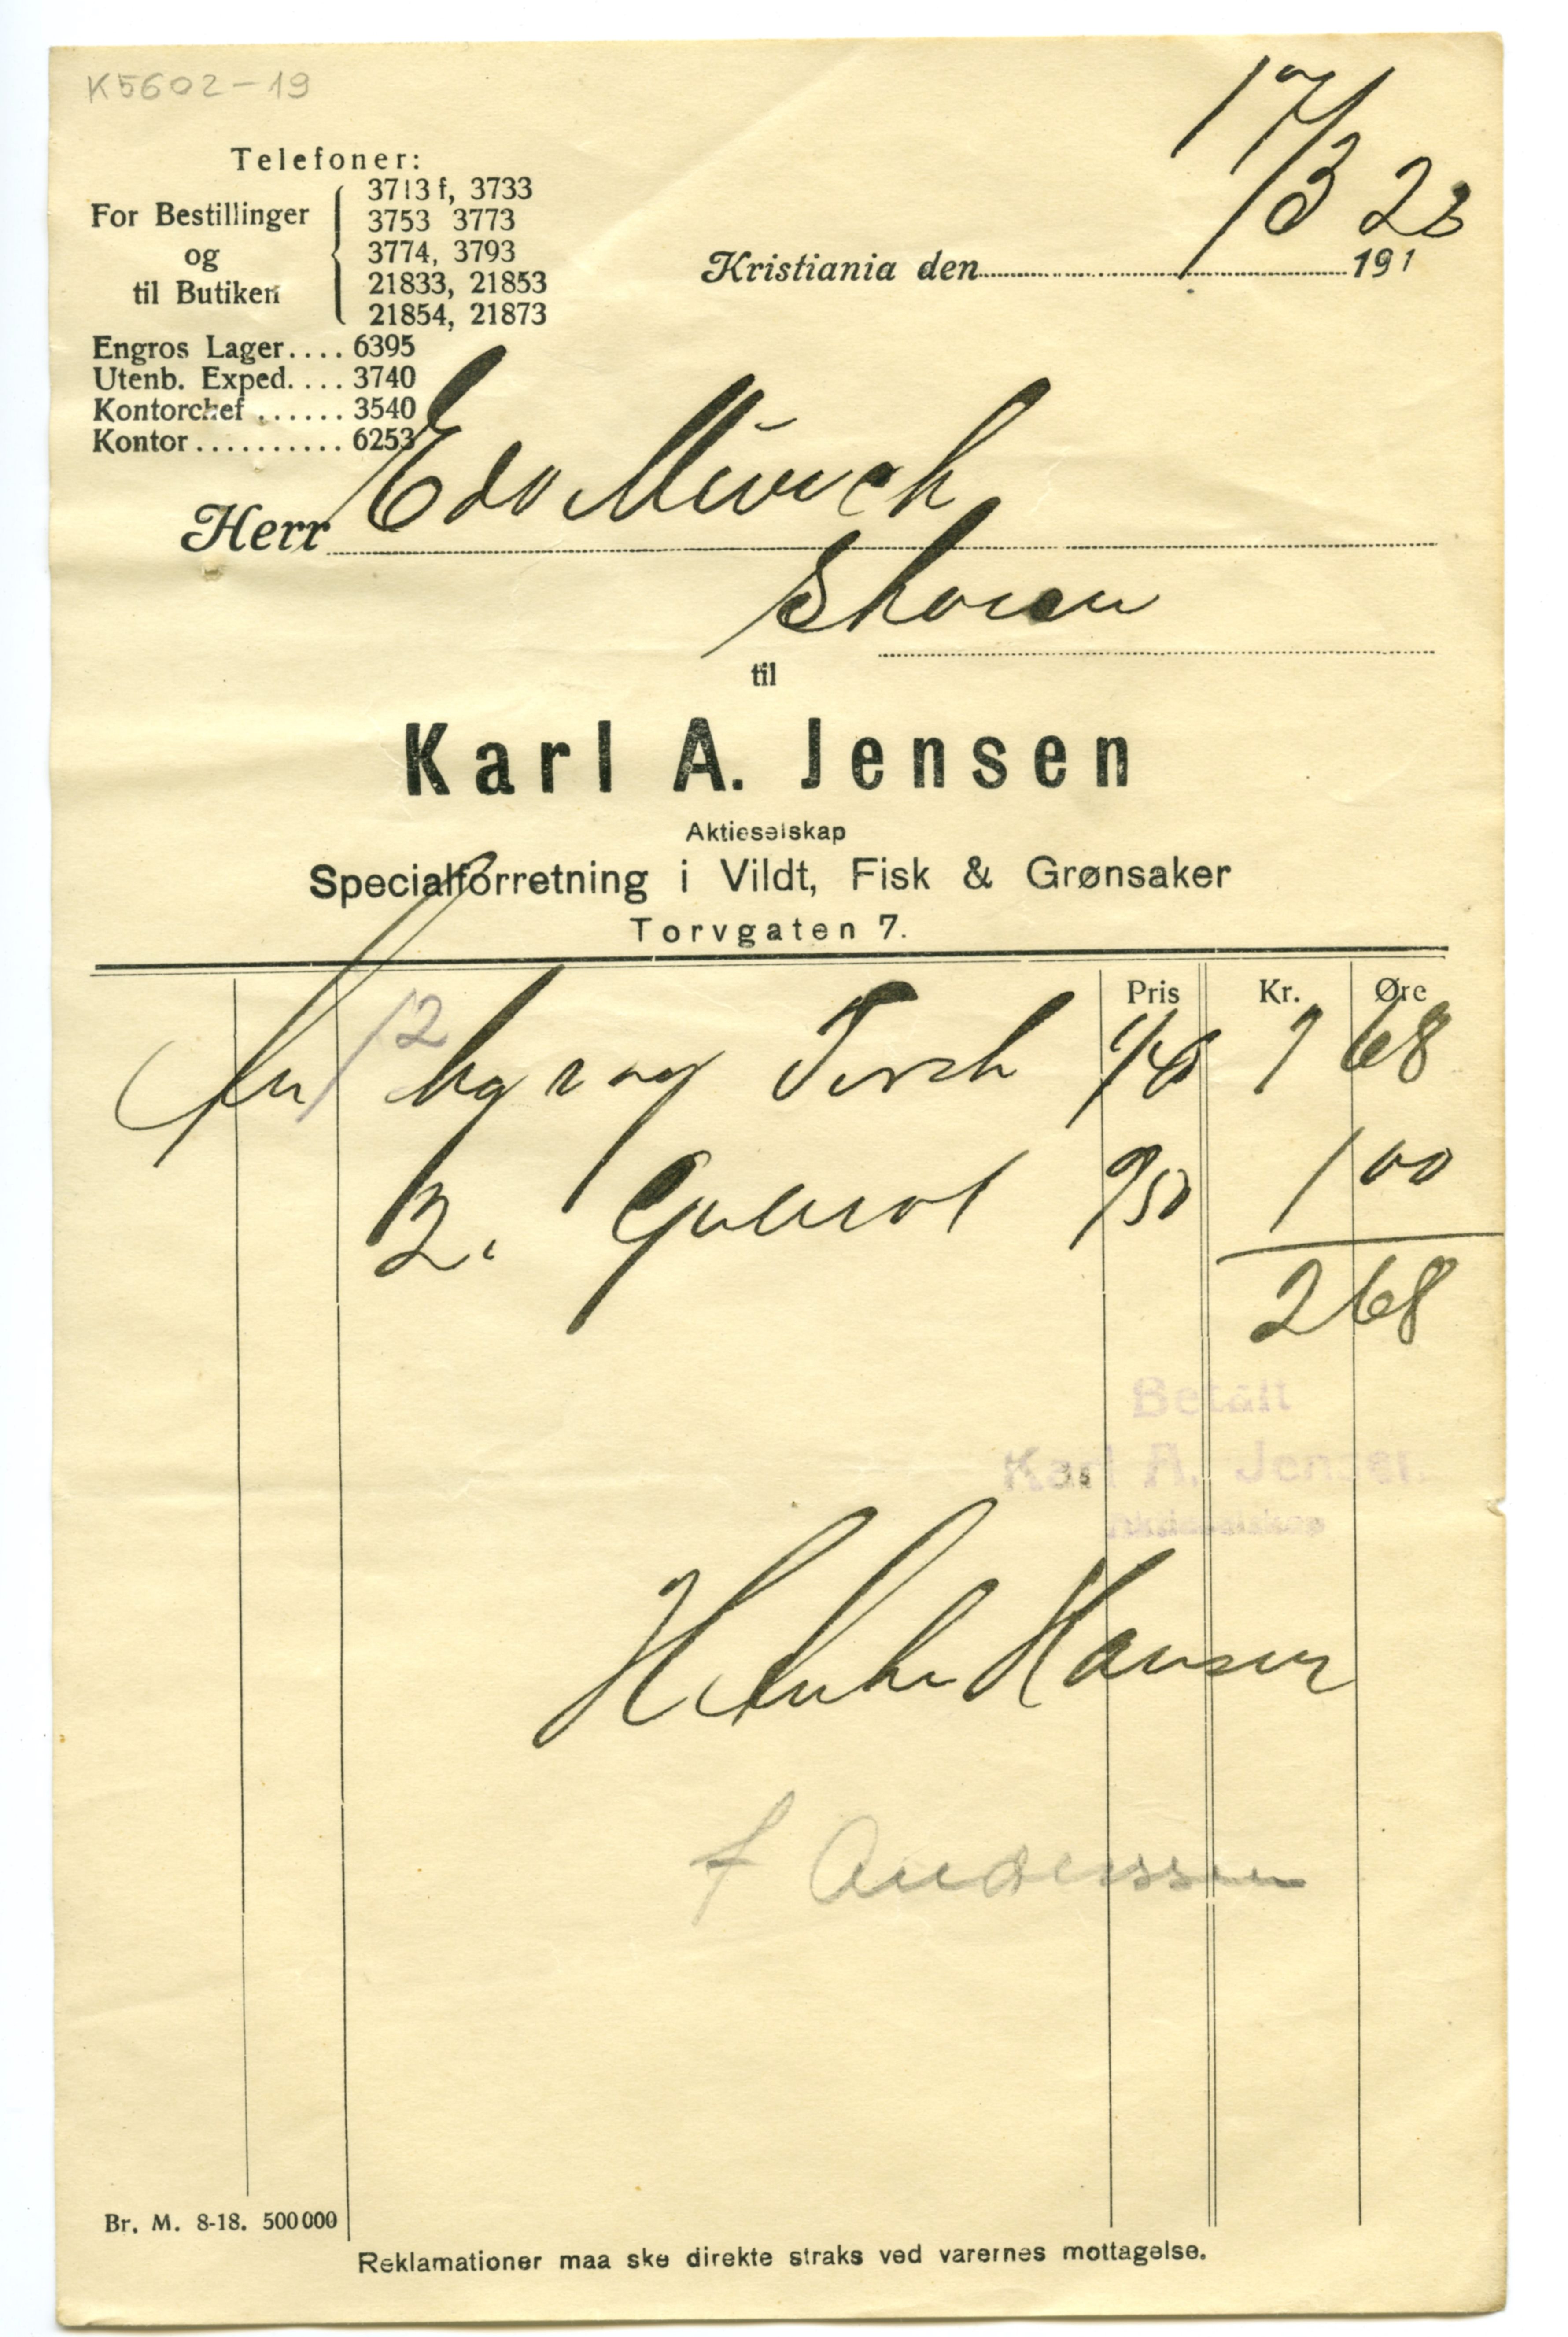 K5602-19
17/3 23
Telefoner:
For Bestillinger og til Butiken
3713 f, 3733
3753 3773
3774, 3793
21833, 21853
21854, 21873
Engros Lager.... 6395
Utenb. Exped. ... 3740
Kontorchef ...... 3540
Kontor.......... 6253
Kristiania den 191
Herr Edv Munch
Skøien
til
Karl A. Jensen
Aktieselskap
Specialforretning i Vildt, Fisk & Grønsaker
Torvgaten 7.
Pris Kr. Øre
12 kg Torsk 1/40 1 68
2. Gulerot 50 1 00
2 68
Betalt
Karl A. Jensen
Aktieselskap
Hansen
f Anderssen
Br. M. 8-18. 500000
Reklamationer maa ske direkte straks ved varernes mottagelse.